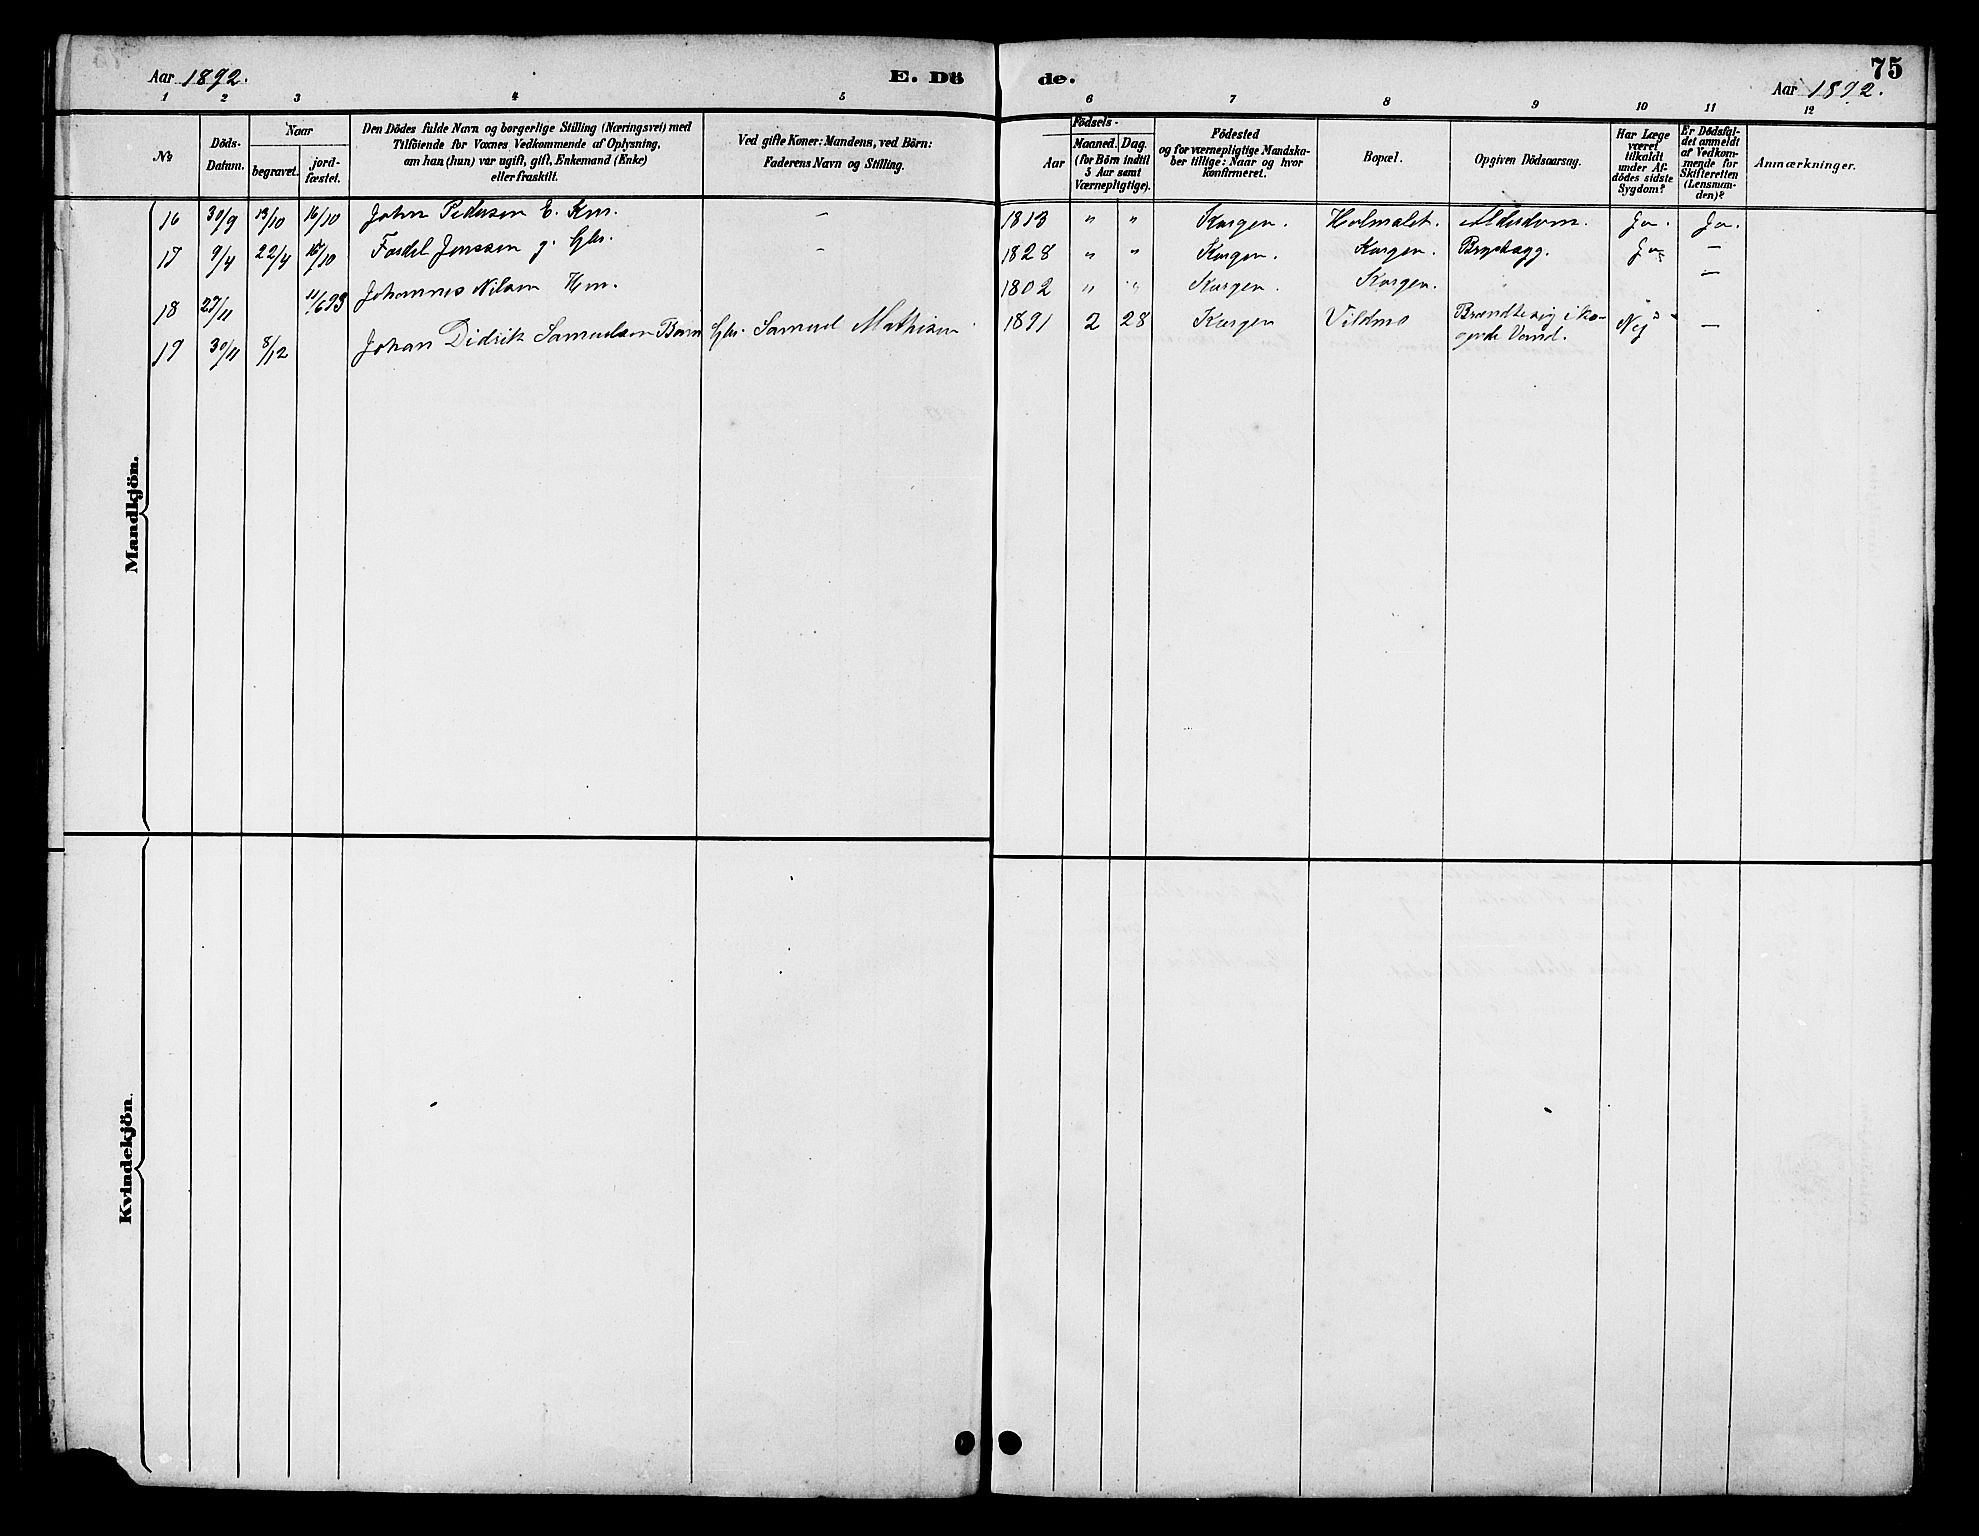 Aar 1892.
E. Dö
de.
75
Aar 1892.
1 2 3 4 5 6 7 8 9 10 11 12
No
Döds-
Datum.
Naar
begravet.
jord-
fæstet.
Den Dödes fulde Navn og borgerlige Stilling (Næringsvei) med
Tilföiende for Voxnes Vedkommende af Oplysning,
om han (hun) var ugift, gift, Enkemand (Enke)
eller fraskilt.
Ved gifte Koner: Mandens, ved Börn:
Faderens Navn og Stilling.
Födsels-
Aar
Maaned.
Dag.
(for Börn indtil
5 Aar samt
Værnepligtige).
Födested
og for værnepligtige Mandska-
ber tillige: Naar og hvor
konfirmeret.
Bopæl.
Opgiven Dödsaarsag.
Har Læge
været
tilkaldt
under Af-
dödes sidste
Sygdom?
Er Dödsfal-
det anmeldt
af Vedkom-
mende for
Skifteretten
(Lensman-
den)?
Anmærkninger.
Mandkjön.
16 30/9 13/10 16/10 John Pedersen E. Km. – 1813 " " Korgen. Holmslet. Alderdom. Ja. Ja.
17 9/4 22/4 16/10 Fordel Jenssen g. Gbr. – 1828 " " Korgen. Korgen. Brystsygg. Ja –
18 27/11 11/6 93 Johannes Nilsen Km. 1802 " " Korgen. Korgen. –
19 30/11 8/12 Johan Didrik Samuelsen Barn Gbr. Samuel Mathisen 1891 2 28 Korgen Vildmo Brændte sig i ko-
gende Vand. Nej –
Kvindekjön.